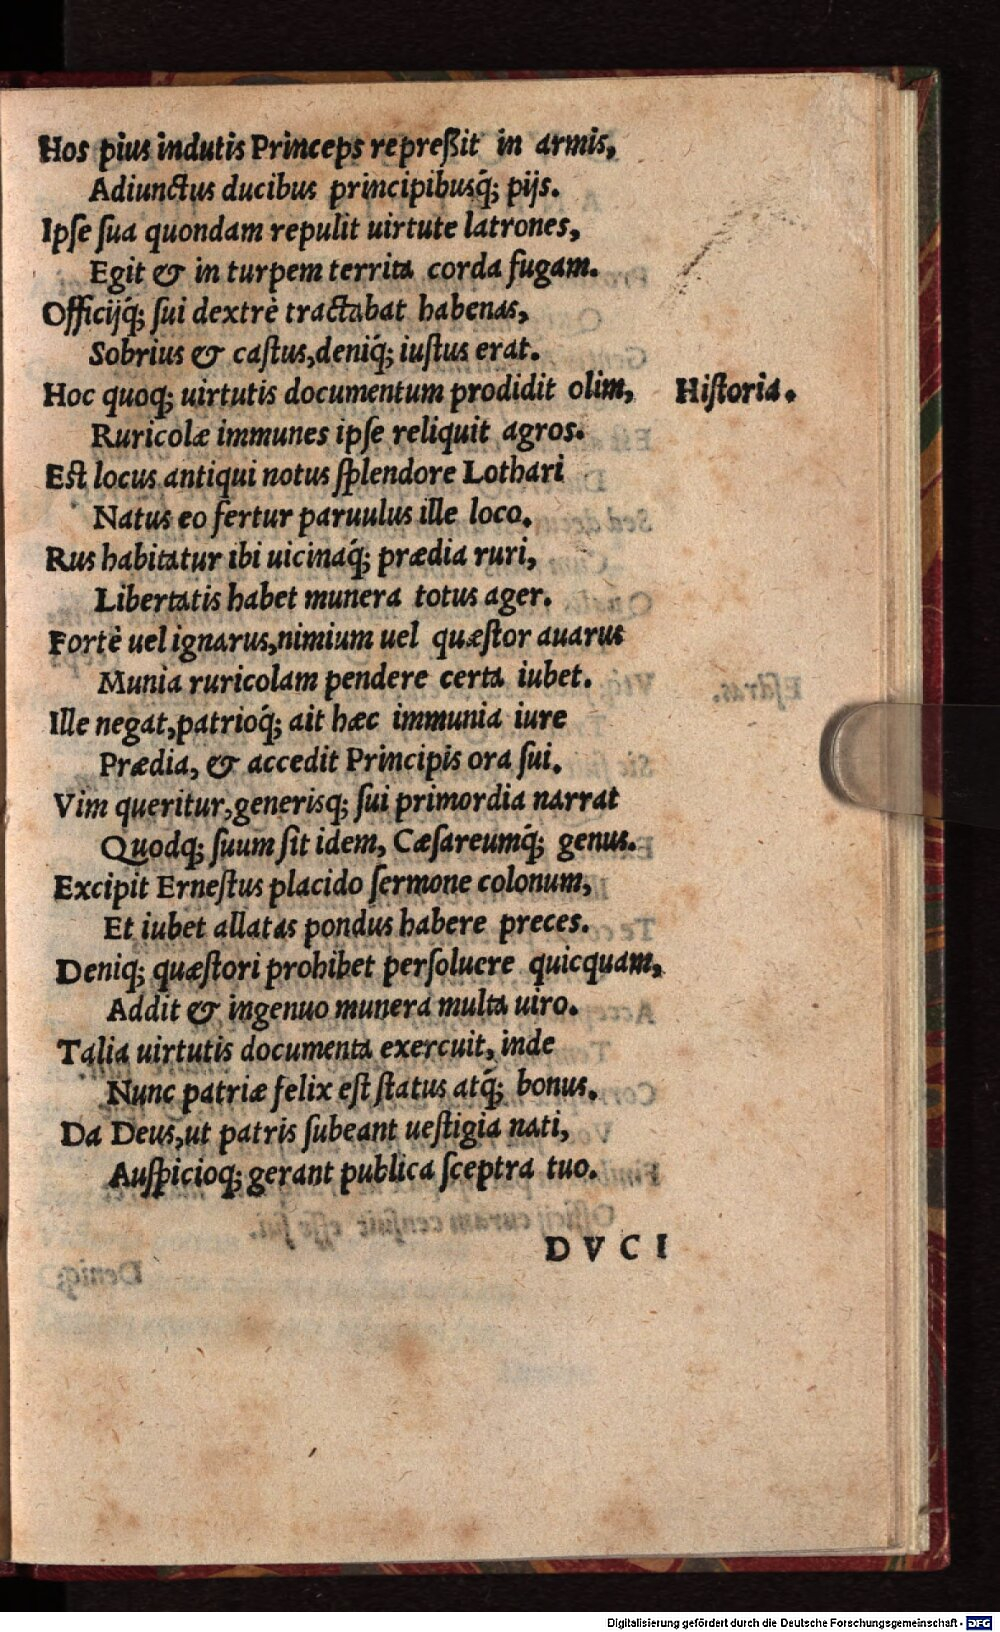 Hos pius indutis Princeps repreßit in armis,
Adiunctus ducibus principibusq́; pijs.
Ipſe ſua quondam repulit uirtute latrones,
Egit & in turpem territa corda fugam.
Officijq́; ſui dextrè tractabat habenas,
Sobrius & caſtus, deniq́; iuſtus erat.
Hoc quoq; uirtutis documentum prodidit olim, Hiſtoria.
Ruricolæ immunes ipſe reliquit agros.
Eſt locus antiqui notus ſplendore Lothari
Natus eo fertur paruulus ille loco.
Rus habitatur ibi uicinaq́; prædia ruri,
Libertatis habet munera totus ager.
Fortè uel ignarus, nimium uel quæſtor auarus
Munia ruricolam pendere certa iubet.
Ille negat, patrioq́; ait hæc immunia iure
Prædia, & accedit Principis ora ſui.
Vim queritur, generisq; ſui primordia narrat
Quodq; ſuum ſit idem, Cæſareumq́; genus.
Excipit Erneſtus placido ſermone colonum,
Et iubet allatas pondus habere preces.
Deniq; quæſtori prohibet perſoluere quicquam,
Addit & ingenuo munera multa uiro.
Talia uirtutis documenta exercuit, inde
Nunc patriæ felix eſt ſtatus atq́; bonus.
Da Deus, ut patris ſubeant ueſtigia nati,
Auſpicioq; gerant publica ſceptra tuo.
DVCI
Digitalisierung gefördert durch die Deutsche Forschungsgemeinschaft - DFG